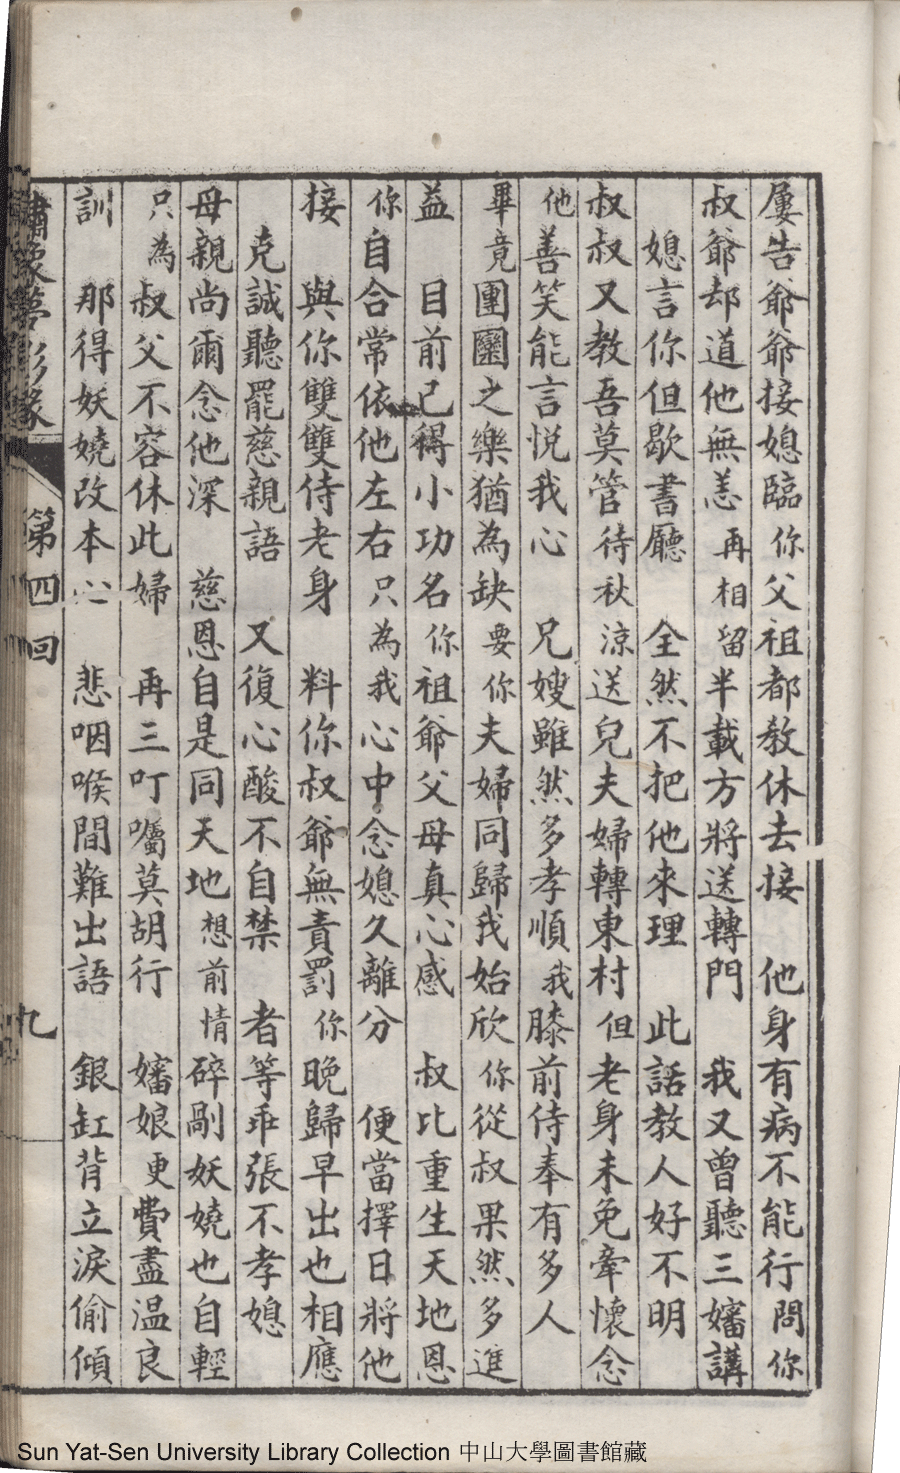 屢告爺爺接媳臨你父祖都教休去接　他身有病不能行問你
叔爺却道他無恙再相留半載方將送轉門　我又曾聽三嬸講
媳言你但歇書廳　全然不把他來理　此話教人好不明
叔叔又教吾莫管待秋涼送兒夫婦轉東村但老身未免牽懷念
他善笑能言悦我心　兄嫂雖然多孝順我膝前侍奉有多人
畢竟團圞之樂猶為缺要你夫婦同歸我始欣你從叔果然多進
益　目前已得小功名你祖爺父母真心感　叔比重生天地恩
你自合常依他左右只為我心中念媳久離分　便當擇日將他
接　與你雙雙侍老身　料你叔爺無責罰你晚歸早出也相應
克誠聽罷慈親語　又復心酸不自禁　者等乖張不孝媳
母親尚爾念他深　慈恩自是同天地想前情碎剮妖嬈也自輕
只為叔父不容休此婦　再三叮囑莫胡行　嬸娘更費盡温良
訓　那得妖嬈改本心　悲咽喉間難出語　銀缸背立淚偷傾
繡像夢影緣　第四回　九
Sun Yat-Sen University Library Collection 中山大學圖書館藏